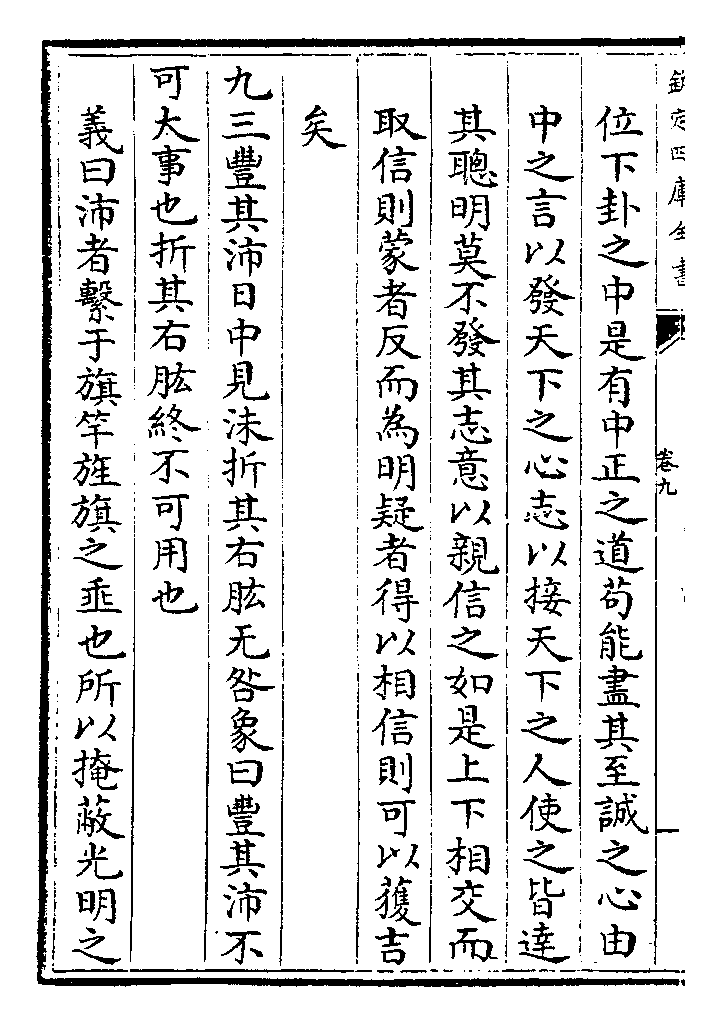 欽定四庫全書
卷九
位下卦之中是有中正之道苟能盡其至誠之心由
中之言以發天下之心志以接天下之人使之皆達
其聰明莫不發其志意以親信之如是上下相交而
取信則蒙者反而為明疑者得以相信則可以獲吉
矣
九三豐其沛日中見沬折其右肱无咎象曰豐其沛不
可大事也折其右肱終不可用也
義曰沛者繫于旗竿旌旗之垂也所以掩蔽光明之